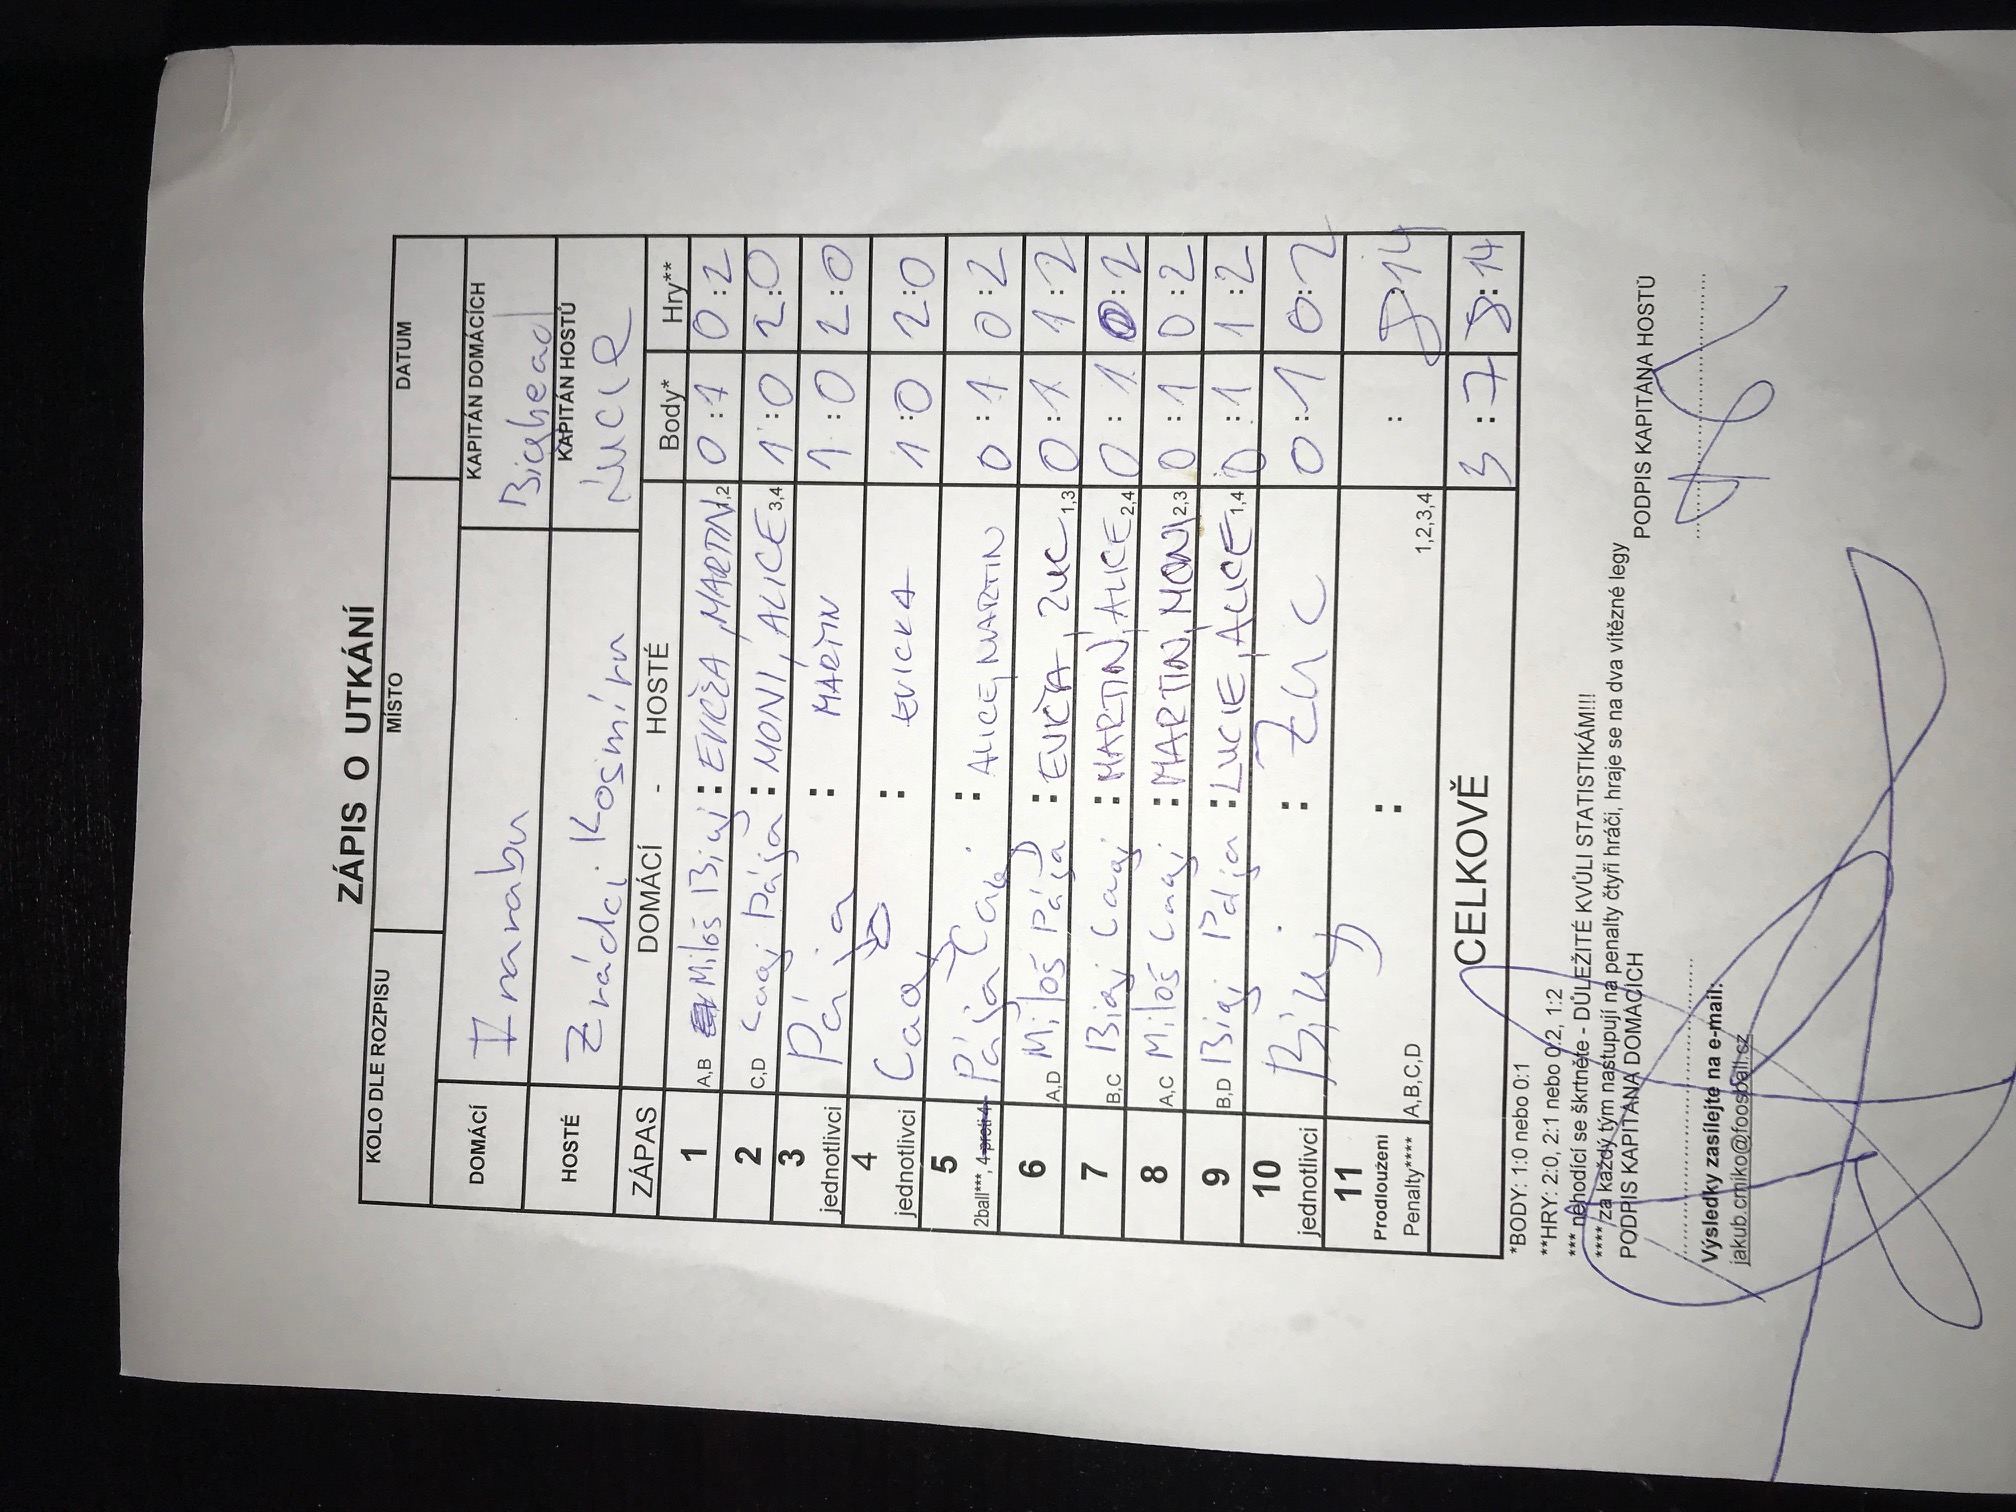 ZÁPIS O UTKÁNÍ
KOLO DLE ROZPISU MÍSTO DATUM
DOMÁCÍ KAPITÁN DOMÁCÍCH
Bighead
HOSTÉ Zrádci Kosmíru KAPITÁN HOSTŮ
Lucie
ZÁPAS DOMÁCÍ - HOSTÉ Body* Hry**
1 A,B Miloš : EVIČKA, MARTIN 1,2 0:1 0:2
2 C,D Pája : MONI, ALICE 3,4 1:0 2:0
3 jednotlivci Pája : MARTIN 1:0 2:0
4 jednotlivci : EVICKA 1:0 2:0
5 2ball***, 4 proti 4 Pája : ALICE, MARTIN 0:1 0:2
6 A,D Miloš Pája : EVIČKA, ZUC 1,3 0:1 1:2
7 B,C : MARTIN, ALICE 2,4 0:1 0:2
8 A,C Miloš : MARTIN, MONI 2,3 0:1 0:2
9 B,D Pája : LUCIE, ALICE 1,4 0:1 1:2
10 jednotlivci : Zuc 0:1 0:2
11 Prodloužení Penalty**** A,B,C,D : 1,2,3,4 : 8:14
CELKOVĚ 3:7 8:14
*BODY: 1:0 nebo 0:1
**HRY: 2:0, 2:1 nebo 0:2, 1:2
*** nehodící se škrtněte - DŮLEŽITÉ KVŮLI STATISTIKÁM!!!
**** za každý tým nastupují na penalty čtyři hráči, hraje se na dva vítězné legy
PODPIS KAPITÁNA DOMÁCÍCH PODPIS KAPITÁNA HOSTŮ
Výsledky zasílejte na e-mail:
jakub.crniko@foosball.cz